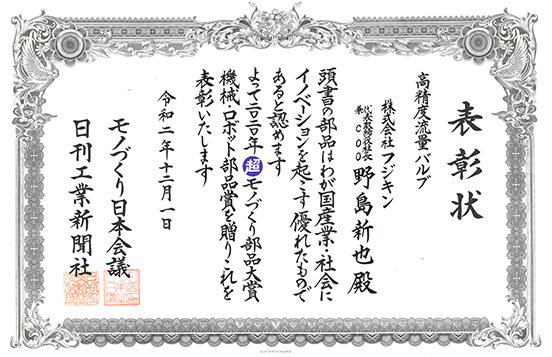 表彰状
高精度流量バルブ
株式会社フジキン
代表取締役社長
兼COO
野島新也殿
頭書の部品はわが国産業・社会に
イノベーションを起こす優れたもので
あると認めます
よって二〇二〇年超モノづくり部品大賞
機械・ロボット部品賞を贈りこれを
表彰いたします
令和二年十二月一日
モノづくり日本会議
日刊工業新聞社